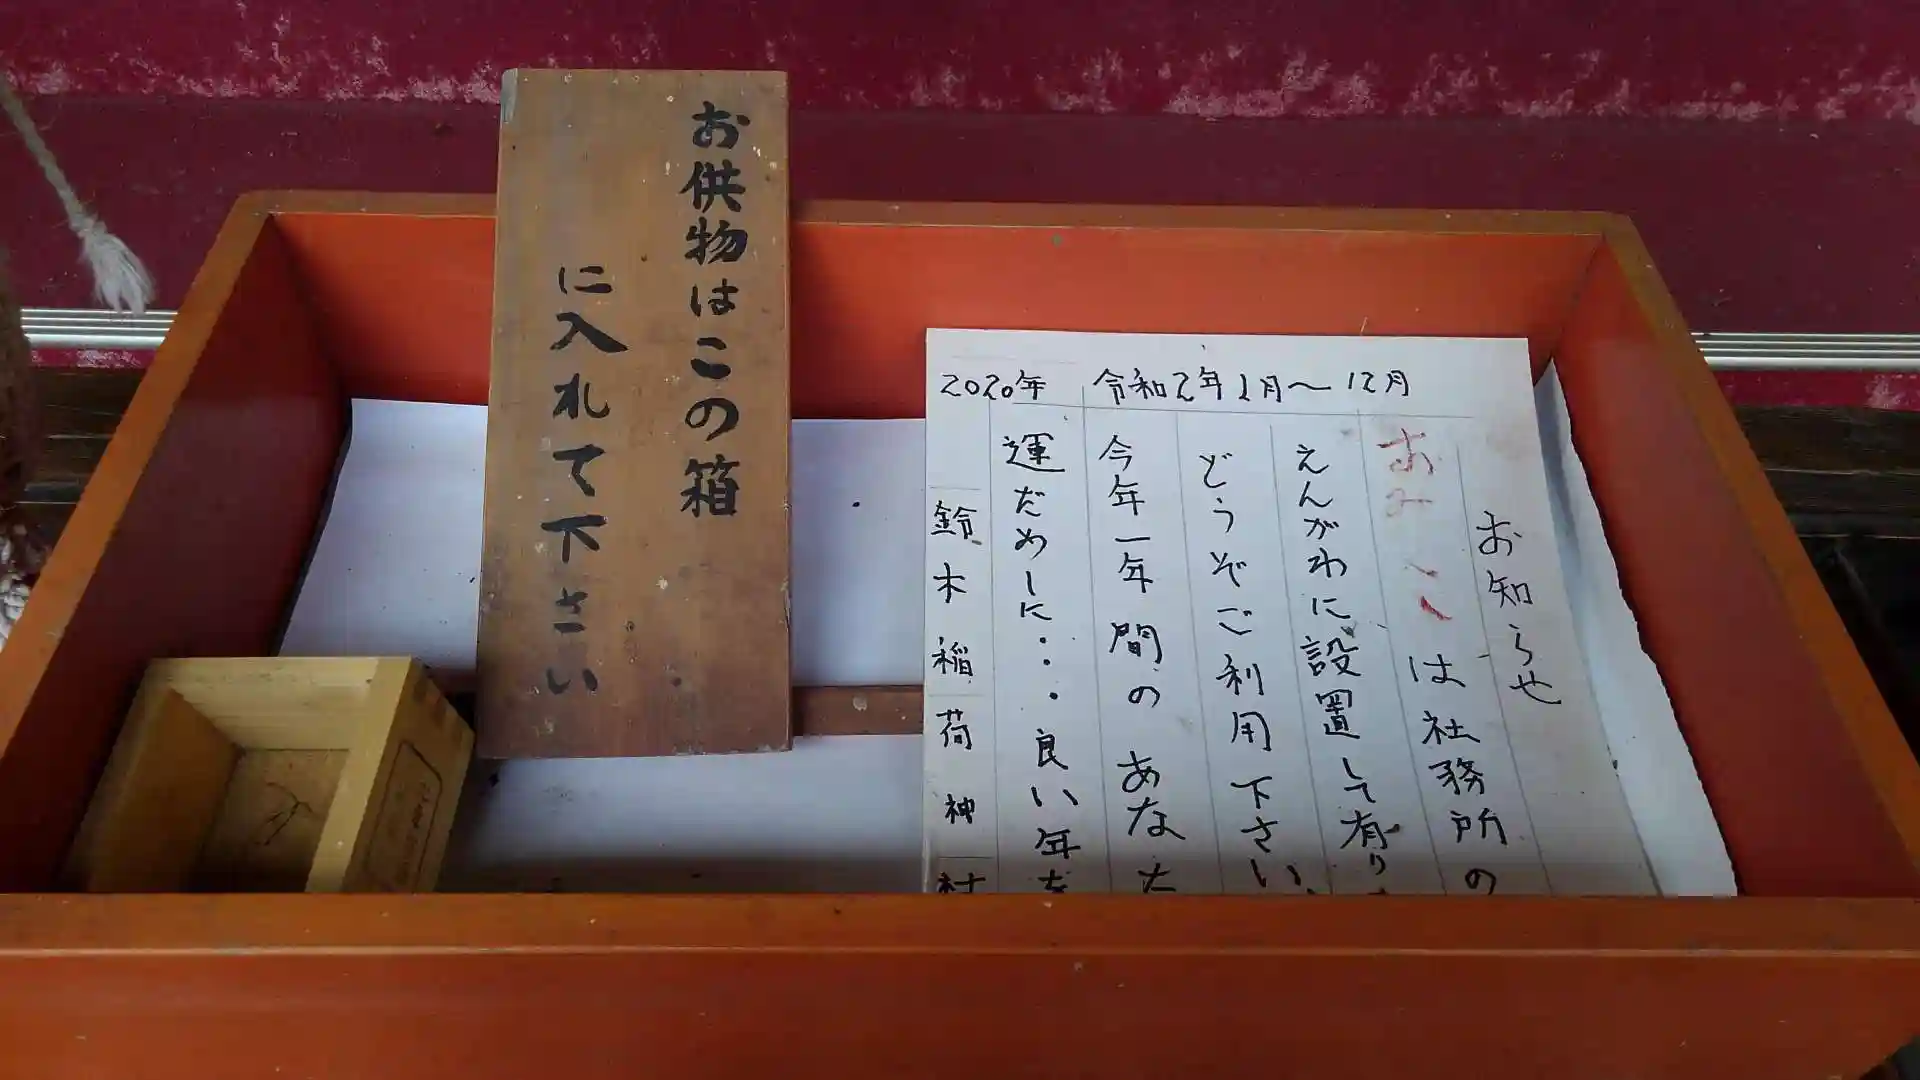 お供物はこの箱
に入れて下さい
2020年 令和2年1月〜12月
お知らせ
おみくじは社務所の
えんがわに設置して有り
どうぞご利用下さい、
今年一年間のあなた
運だめしに・・・良い年を
鈴木稲荷神社